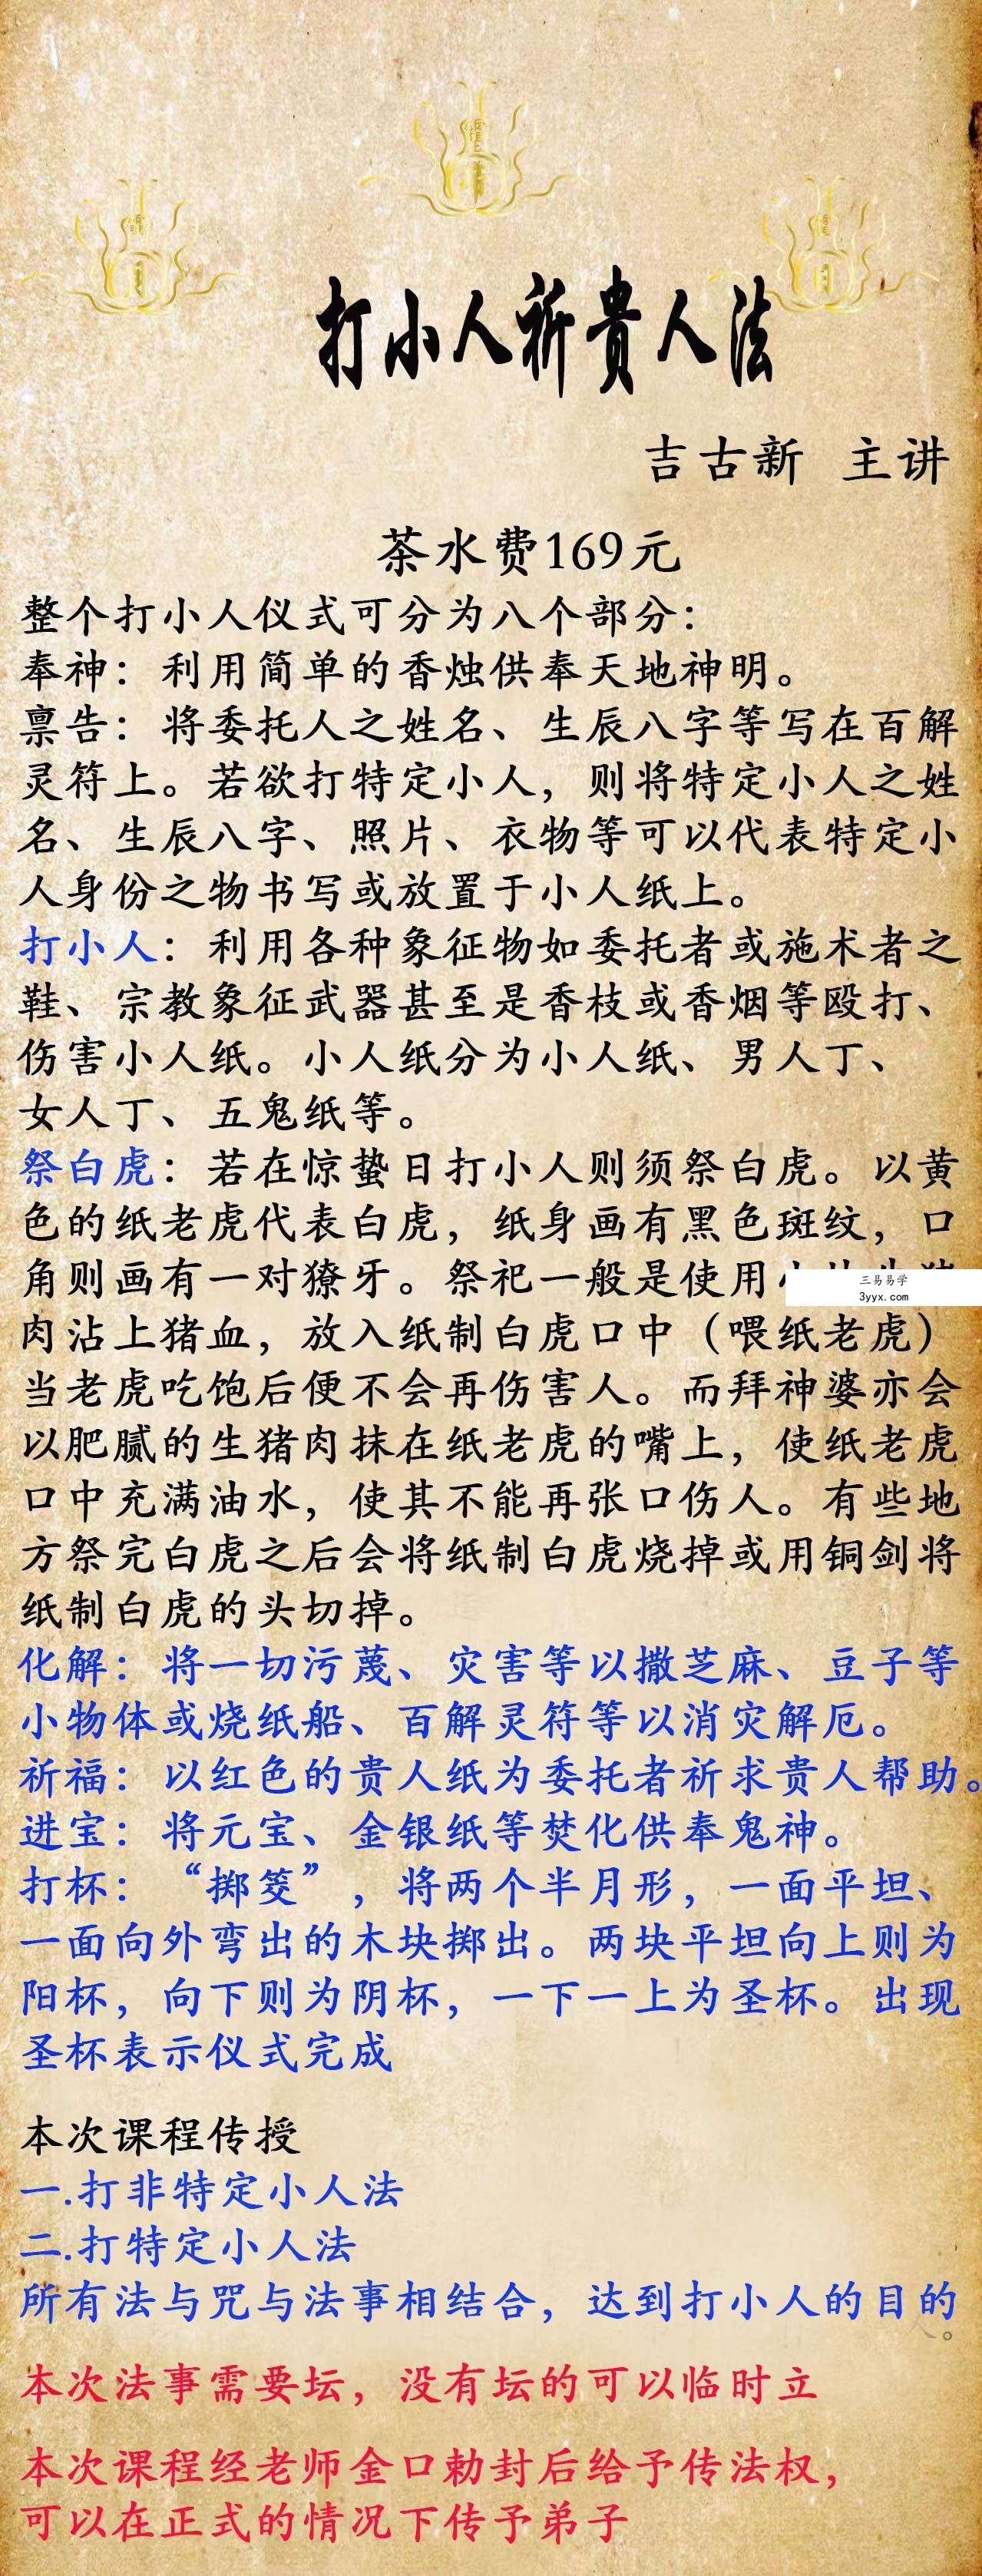 打小人祈贵人法
吉古新 主讲
茶水费169元
整个打小人仪式可分为八个部分：
奉神：利用简单的香烛供奉天地神明。
禀告：将委托人之姓名、生辰八字等写在百解
灵符上。若欲打特定小人，则将特定小人之姓
名、生辰八字、照片、衣物等可以代表特定小
人身份之物书写或放置于小人纸上。
打小人：利用各种象征物如委托者或施术者之
鞋、宗教象征武器甚至是香枝或香烟等殴打、
伤害小人纸。小人纸分为小人纸、男人丁、
女人丁、五鬼纸等。
祭白虎：若在惊蛰日打小人则须祭白虎。以黄
色的纸老虎代表白虎，纸身画有黑色斑纹，口
角则画有一对獠牙。祭祀一般是使用
三易易学
3yyx.com
肉沾上猪血，放入纸制白虎口中（喂纸老虎）
当老虎吃饱后便不会再伤害人。而拜神婆亦会
以肥腻的生猪肉抹在纸老虎的嘴上，使纸老虎
口中充满油水，使其不能再张口伤人。有些地
方祭完白虎之后会将纸制白虎烧掉或用铜剑将
纸制白虎的头切掉。
化解：将一切污蔑、灾害等以撒芝麻、豆子等
小物体或烧纸船、百解灵符等以消灾解厄。
祈福：以红色的贵人纸为委托者祈求贵人帮助。
进宝：将元宝、金银纸等焚化供奉鬼神。
打杯：“掷筊”，将两个半月形，一面平坦、
一面向外弯出的木块掷出。两块平坦向上则为
阳杯，向下则为阴杯，一下一上为圣杯。出现
圣杯表示仪式完成
本次课程传授
一.打非特定小人法
二.打特定小人法
所有法与咒与法事相结合，达到打小人的目的
。
本次法事需要坛，没有坛的可以临时立
本次课程经老师金口勅封后给予传法权，
可以在正式的情况下传予弟子